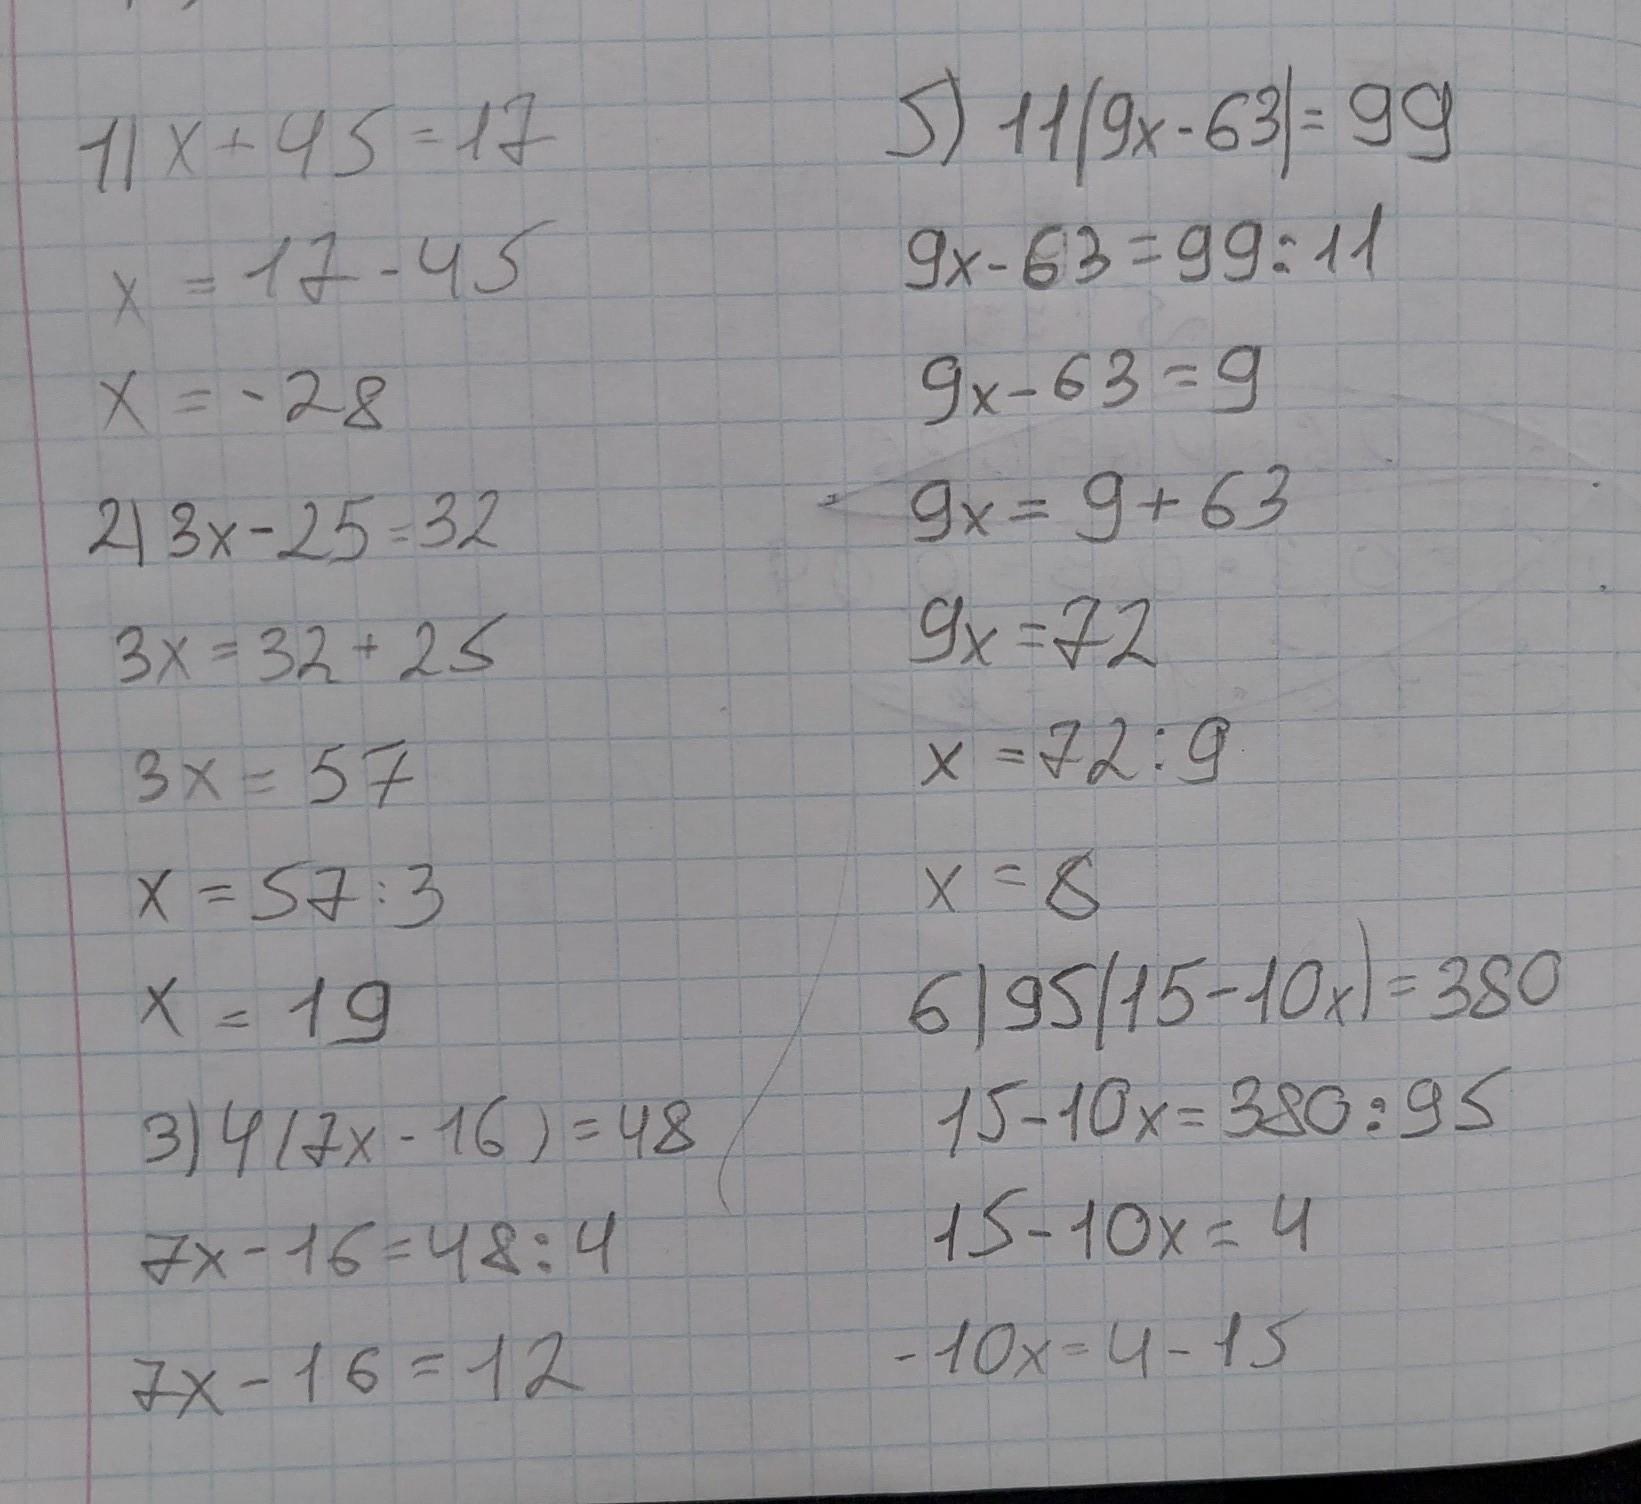 1) x + 45 = 17
x = 17 - 45
x = -28
2) 3x - 25 = 32
3x = 32 + 25
3x = 57
x = 57 : 3
x = 19
3) 4(7x - 16) = 48
7x - 16 = 48 : 4
7x - 16 = 12
5) 11(9x - 63) = 99
9x - 63 = 99 : 11
9x - 63 = 9
9x = 9 + 63
9x = 72
x = 72 : 9
x = 8
6) 95(15 - 10x) = 380
15 - 10x = 380 : 95
15 - 10x = 4
-10x = 4 - 15